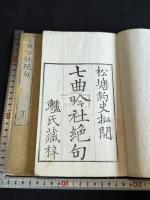 松塘釣史批閲
七曲吟社絶句
鱸氏藏梓
七曲吟社絶句